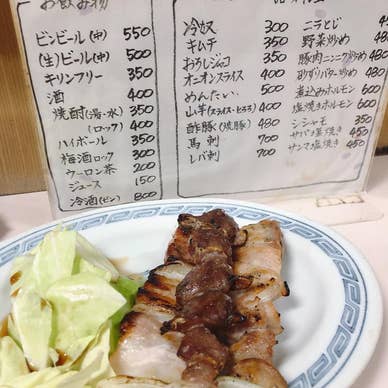 お飲み物
ビンビール(中) 550
(生)ビール(中) 500
キリンフリー 350
酒 400
焼酎(湯・水) 350
(ロック) 400
ハイボール 350
梅酒ロック 300
ウーロン茶 200
ジュース 150
冷酒(ビン) 800
冷奴 300
キムチ 300
おろしジャコ 350
オニオンスライス 350
めんたい 500
山芋(スライス・とろろ) 400
酢豚(炊豚) 480
馬刺 700
レバ刺 700
ニラとじ 450
野菜炒め 450
豚肉ニンニク炒め 480
砂ずりバター炒め 480
煮込みホルモン 600
塩焼きホルモン 600
シシャモ 350
サバ塩焼き 450
サンマ塩焼き 450